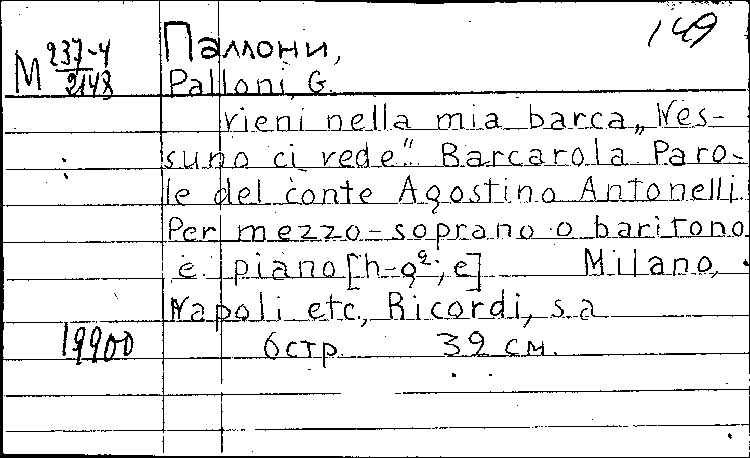 149
Паллони,
М 237-4
2148
Palloni, G.
Vieni nella mia barca „Nes-
suno ci vede". Barcarola Paro-
le del conte Agostino Antonelli.
Per mezzo-soprano o baritono
e piano [h-g²; e] Milano,
Napoli etc., Ricordi, s.a
19900
6 стр. 39 см.